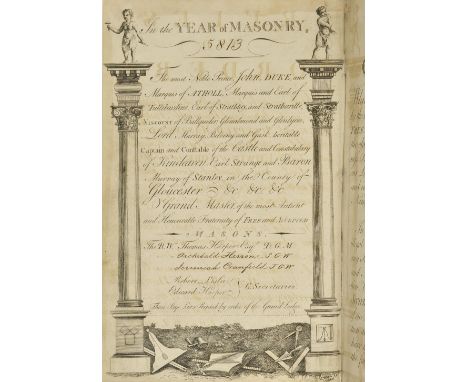 In the YEAR of MASONRY,
5813
The most Noble Prince John, DUKE and
Marquis of ATHOLL, Marquis and Earl of
Tullibardine, Earl of Strathtay, and Strathardle
Viscount of Ballquider Glenalmond and Glenlyon,
Lord Murray, Belveny and Gask heritable
Captain and Constable of the Castle and Constabulary
of Kincleaven Earl Strange and Baron
Murray of Stanley, in the County of
Gloucester &c &c &c
Grand Master of the most Antient
and Honourable Fraternity of FREE and ACCEPTED
MASONS.
The R.W. Thomas Harper Esqr. D.G.M
Archibald Herron S.G.W
Jeremiah Cranfield J.G.W
Robert Leslie
Edward Harper G. Secretaries
These Bye Laws Printed by order of the Grand Lodge